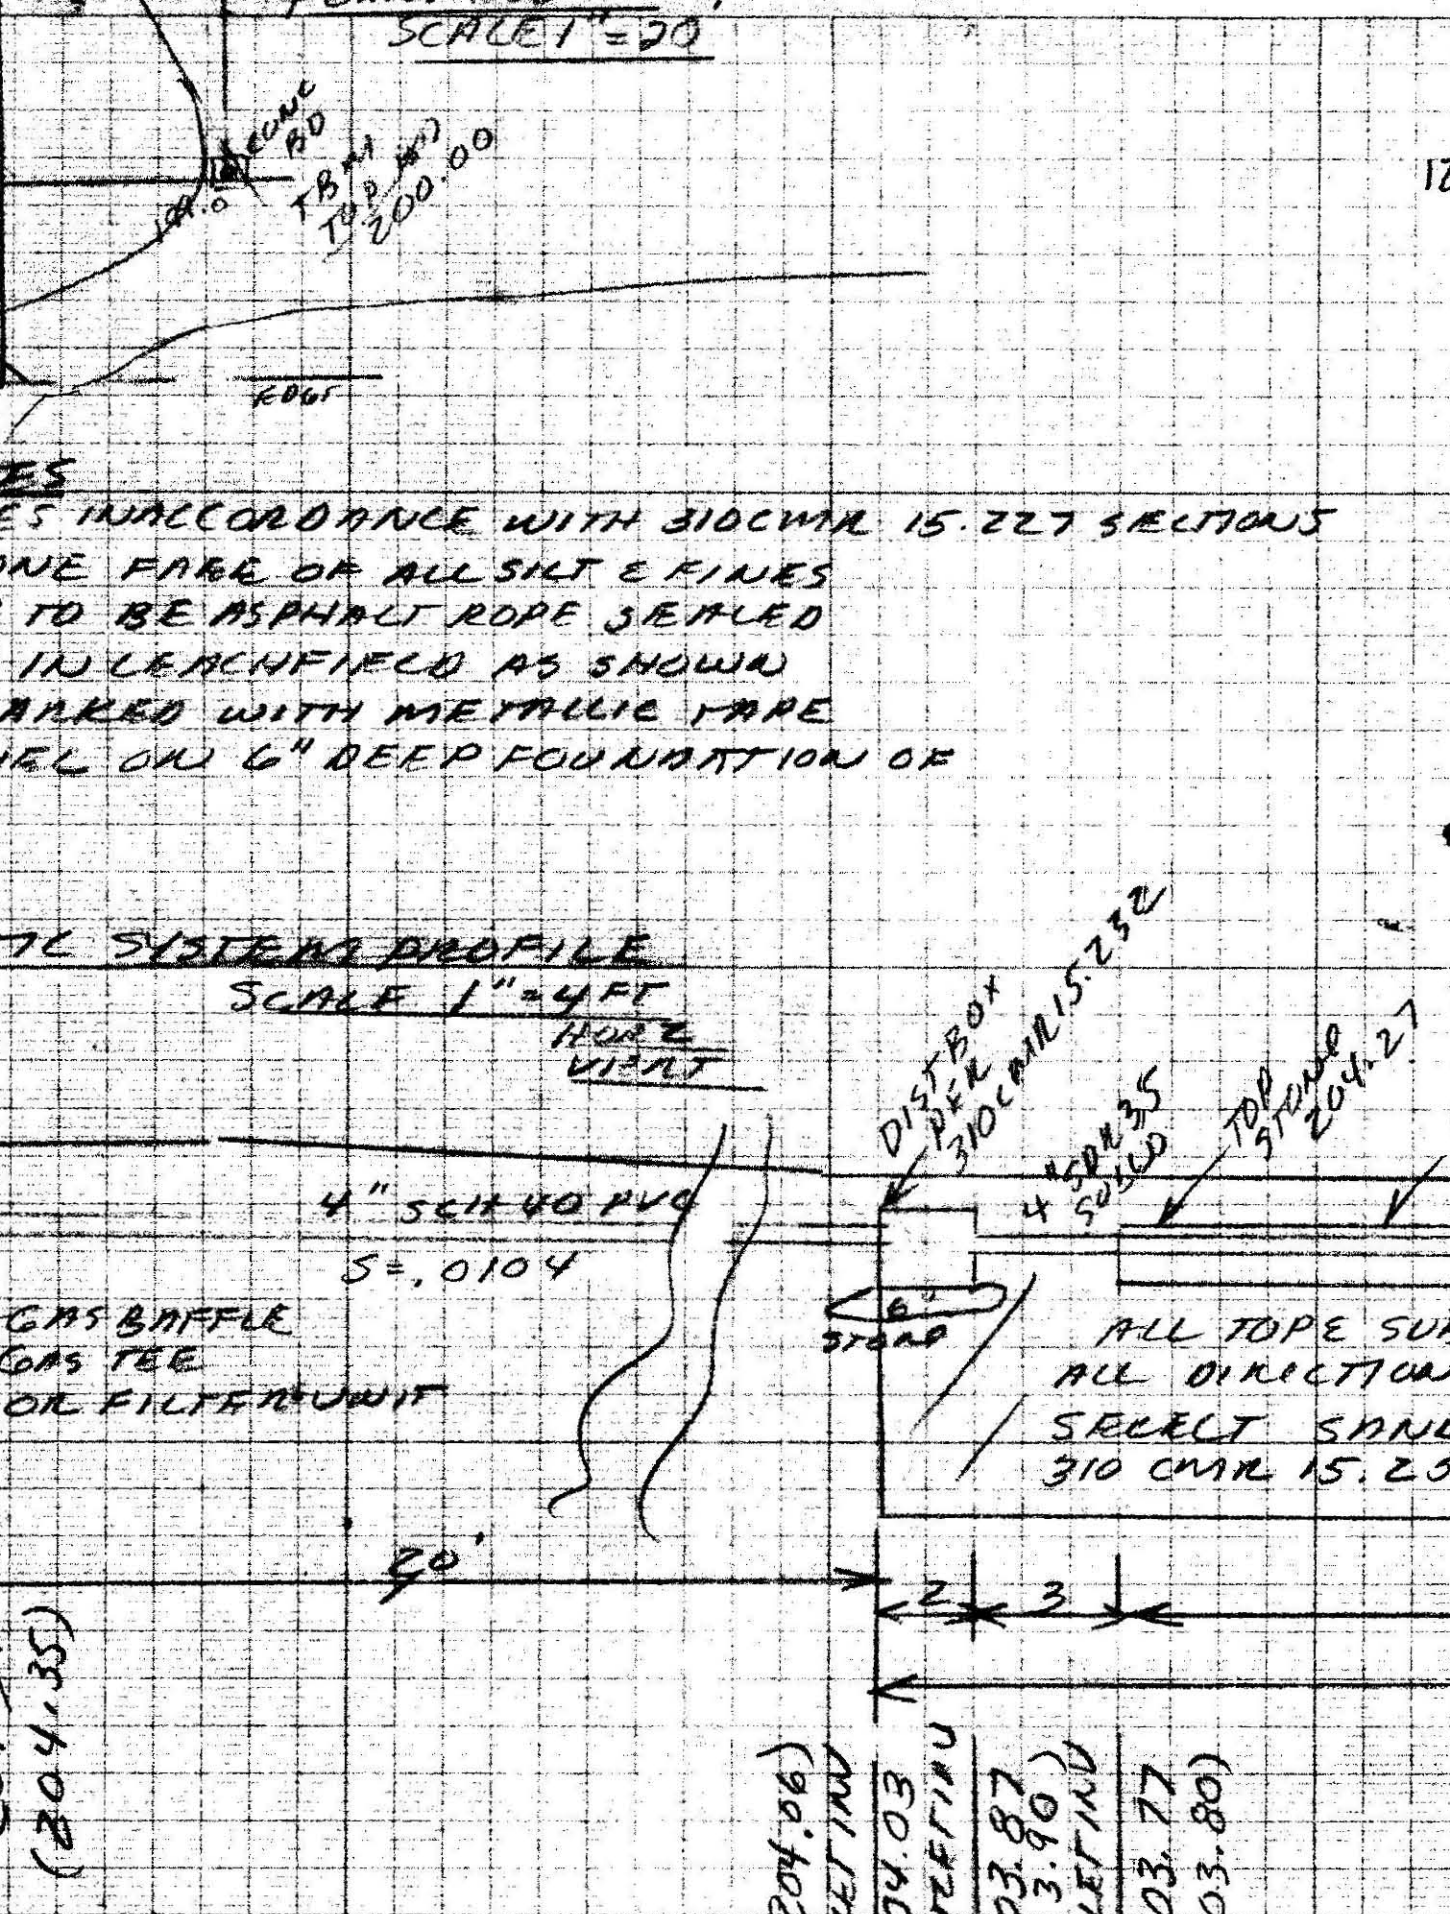 SCALE 1"=20
CONC
BD
TBM
TOP
200.00
12
EDGE
ES
ES INACCORDANCE WITH 310CMR 15.227 SECTIONS
ONE FREE OF ALL SILT & FINES
TO BE ASPHALT ROPE SEALED
IN LEACHFIELD AS SHOWN
ARKED WITH METALLIC TAPE
EL ON 6" DEEP FOUNDATION OF
IC SYSTEM PROFILE
SCALE 1"=4FT
HORZ
VERT
DIST BOX
PER
310CMR 15.232
4" SDR 35
SOLID
TOP
STONE
204.27
4" SCH 40 PVC
S=.0104
GAS BAFFLE
GAS TEE
OR FILTER UNIT
6"
STONE
ALL TOP & SU
ALL DIRECTION
SELECT SAN
310 CMR 15.25
20'
2
3
(204.35)
204.06)
LET INV
04.03
TLET INV
03.87
3.90)
LET INV
03.77
03.80)